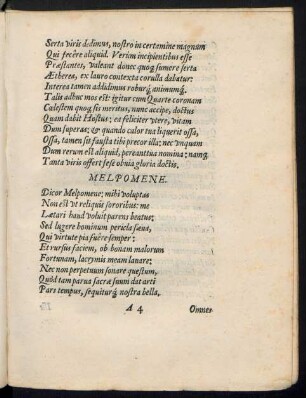 Serta viris dedimus, nostro in certamine magnum
Qui fecêre aliquid. Verùm incipientibus esse
Præstantes, valeant donec quoq; sumere serta
Ætherea, ex lauro contexta corulla dabatur:
Interea tamen addidimus roburq; animumq;.
Talis adhuc mos est: igitur cum Quarte coronam
Cælestem quoq; sis meritus, nunc accipe, doctus
Quam dabit Hostus: ea feliciter vtere, vitam
Dum superas; & quando calor tua liquerit ossa,
Ossa, tamen sit fausta tibi precor illa; nec vnquam
Dum rerum est aliquid, pereant tua nomina; namq;
Tanta viris offert sese obuia gloria doctis.
MELPOMENE.
Dicor Melpomene; mihi voluptas
Non est vt reliquis sororibus: me
Lætari haud voluit parens beatus;
Sed lugere hominum pericla sæua,
Qui virtute pia fuêre semper:
Et rursus faciem, ob bonam malorum
Fortunam, lacrymis meam lauare;
Nec non perpetuum sonare questum,
Quòd tam parua sacræ siumi dat arti
Pars tempus, sequiturq; nostra bella,
A 4
Omnes